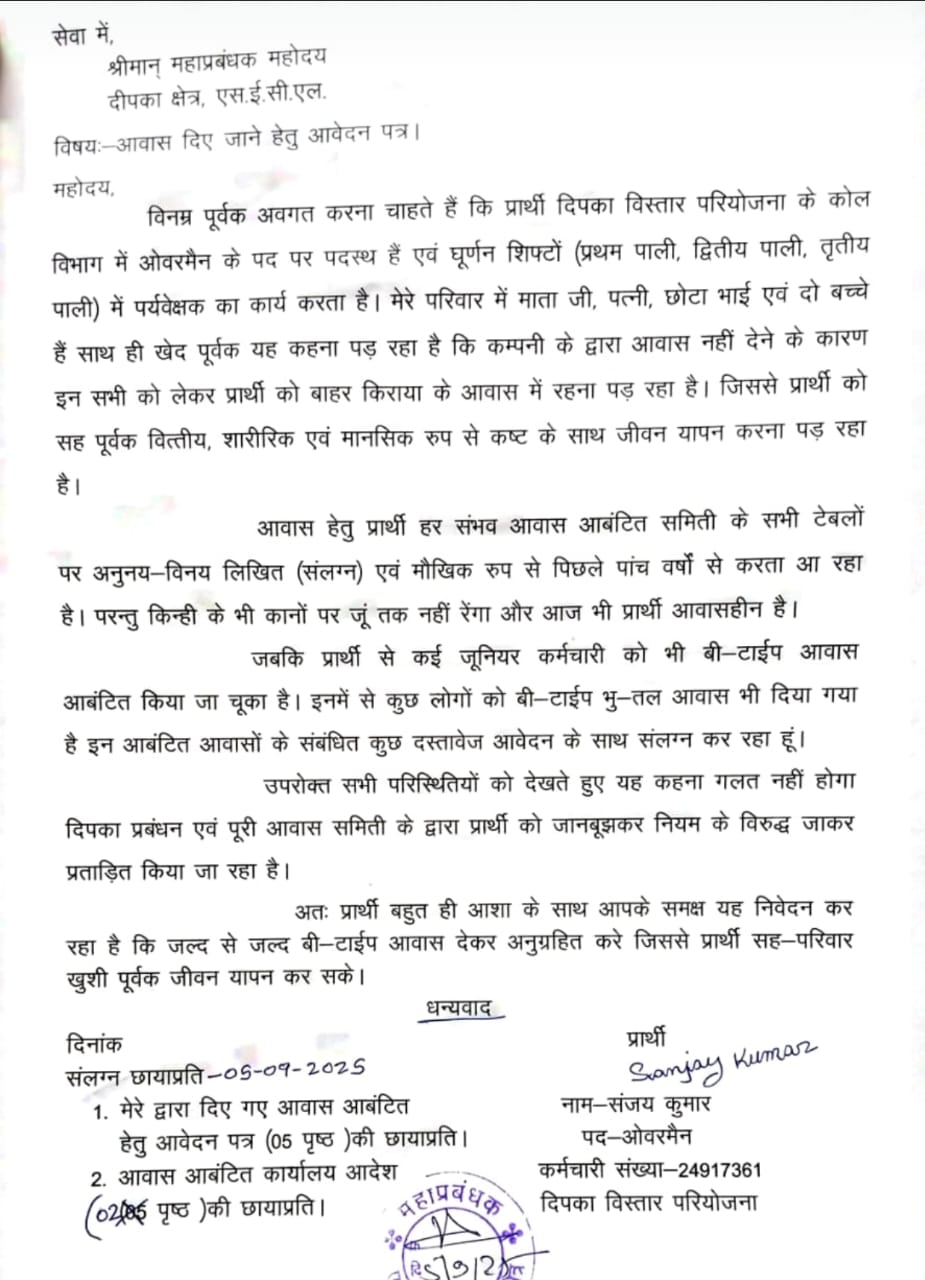 सेवा में,
श्रीमान् महाप्रबंधक महोदय
दीपका क्षेत्र, एस.ई.सी.एल.
विषयः–आवास दिए जाने हेतु आवेदन पत्र।
महोदय,
विनम्र पूर्वक अवगत करना चाहते हैं कि प्रार्थी दिपका विस्तार परियोजना के कोल
विभाग में ओवरमैन के पद पर पदस्थ हैं एवं घूर्णन शिफ्टों (प्रथम पाली, द्वितीय पाली, तृतीय
पाली) में पर्यवेक्षक का कार्य करता है। मेरे परिवार में माता जी, पत्नी, छोटा भाई एवं दो बच्चे
हैं साथ ही खेद पूर्वक यह कहना पड़ रहा है कि कम्पनी के द्वारा आवास नहीं देने के कारण
इन सभी को लेकर प्रार्थी को बाहर किराया के आवास में रहना पड़ रहा है। जिससे प्रार्थी को
सह पूर्वक वित्तीय, शारीरिक एवं मानसिक रुप से कष्ट के साथ जीवन यापन करना पड़ रहा
है।
आवास हेतु प्रार्थी हर संभव आवास आबंटित समिती के सभी टेबलों
पर अनुनय–विनय लिखित (संलग्न) एवं मौखिक रुप से पिछले पांच वर्षो से करता आ रहा
है। परन्तु किन्ही के भी कानों पर जूं तक नहीं रेंगा और आज भी प्रार्थी आवासहीन है।
जबकि प्रार्थी से कई जूनियर कर्मचारी को भी बी–टाईप आवास
आबंटित किया जा चूका है। इनमें से कुछ लोगों को बी–टाईप भु–तल आवास भी दिया गया
है इन आबंटित आवासों के संबंधित कुछ दस्तावेज आवेदन के साथ संलग्न कर रहा हूं।
उपरोक्त सभी परिस्थितियों को देखते हुए यह कहना गलत नहीं होगा
दिपका प्रबंधन एवं पूरी आवास समिती के द्वारा प्रार्थी को जानबूझकर नियम के विरुद्ध जाकर
प्रताड़ित किया जा रहा है।
अतः प्रार्थी बहुत ही आशा के साथ आपके समक्ष यह निवेदन कर
रहा है कि जल्द से जल्द बी–टाईप आवास देकर अनुग्रहित करे जिससे प्रार्थी सह–परिवार
खुशी पूर्वक जीवन यापन कर सके।
धन्यवाद
दिनांक
संलग्न छायाप्रति–05-09-2025
1. मेरे द्वारा दिए गए आवास आबंटित
हेतु आवेदन पत्र (05 पृष्ठ )की छायाप्रति।
2. आवास आबंटित कार्यालय आदेश
(02 पृष्ठ )की छायाप्रति।
प्रार्थी
Sanjay Kumar
नाम–संजय कुमार
पद–ओवरमैन
कर्मचारी संख्या–24917361
दिपका विस्तार परियोजना
महाप्रबंधक
5/9/25